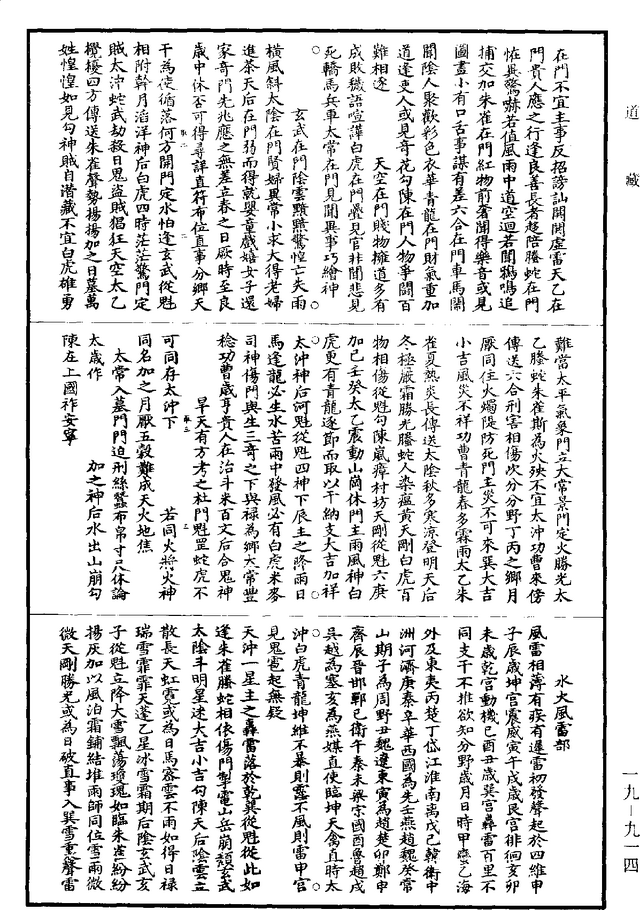 道藏
在門不宜主事反招謗訕開関虛雷天乙在
門貴人應之行逢良善長者趨陪螣蛇在門
恠異驚嚇若值風雨中道空迴若聞鵶鳴追
捕交加朱雀在門紅物前者聞得樂音或見
圖畫小有口舌事謀有差六合在門車馬闐
闐陰人聚歡彩色衣華青龍在門財氣重加
道逢吏人或見奇花勾陳在門人物爭鬪百
雖相逐　天空在門賤物擁道多有
成敗穢語喧譁白虎在門疊見官非聞悲見
死轎馬兵車太常在門見聞異事巧繪神
玄武在門陰雲黯黯驚惶亡失雨
橫風斜太陰在門賢婦異常小求大得老婦
進茶天后在門弱而得就嬰童戲嬉女子還
家奇門先兆應之無差立春之日厥時至良
歲中休否可得尋詳直符布位直事分鄉天
干為使循落何方開門定水怕逢玄武從魁
相附幹月滔洋神后白虎四時茫茫驚門定
賊太沖蛇武劫殺日恩盜賊猖狂天空太乙
攪擾四方傳送朱雀聲勢揚揚加之日墓萬
姓惶惶如見勾神賊自潜藏不宜白虎雄勇
難當太平氣象門立大常景門定火勝光太
乙螣蛇朱雀斯為火殃不宜太沖功曹來傍
傳送六合刑害相傷次分分野丁丙之鄉月
厭同住火燭隄防死門主災不可來巽大吉
小吉風災不祥功曹青龍春多霖雨太乙朱
雀夏熱炎長傳送太陰秋多寒涼登明天后
冬極嚴霜勝光螣蛇人染瘟黃天剛白虎百
物相傷從魁勾陳嵐瘴村坊天剛從魁六庚
加巳壬癸太乙震動山崗休門主雨風神白
虎更有青龍逐節而取以干納支大吉加祥
太沖神后河魁從魁四神下辰主之降雨日
馬逢龍必生水苦雨中發風必有白虎米麥
司神傷門與生三奇之下與祿為鄉大常豐
稔功曹歲亨貴人在治斗米百文后合鬼神
旱天有方考之杜門魁罡蛇虎不
可同存太沖下　若同火將火神
同名加之月厭五穀難成天火地焦
太常入墓門門迫刑絲蠶布帛寸尺休論
太歲作　加之神后水出山崩勾
陳在上國祚安寧
水火風雷部
風雷相薄有疾有遲雷初發聲起於四維申
子辰歲坤宮震威寅午戌歲艮宮徘徊亥卯
未歲乾宮動機巳酉丑歲巽宮轟雷百里不
同支干不推欲知分野歲月日時甲齊乙海
外及東夷丙楚丁岱江淮南蠻戊己韓衛中
洲河濟庚秦辛華西國為先壬燕趙魏癸常
山期子為周野丑魏遼東寅為趙楚卯鄭申
齊辰晉邯鄲巳衛午秦未梁宗國酉魯趙戌
吳越為塞亥為燕媒直使臨坤天禽直時太
沖白虎青龍坤維不暴則露不風則雷甲宮
見鬼雹起無疑
天沖一星主之轟雷落於乾巽從魁從此如
逢朱雀螣蛇相依傷門掣電山岳崩頹玄武
太陰斗明星迷大吉小吉勾陳天后陰雲立
散長天虹霓或為日馬密雲不雨如得日祿
瑞雪霏霏天蓬乙星冰雪霜期后陰玄武亥
子從魁立降大雪飄蕩瓊瑰如臨朱雀一紛
揚灰加以風泊霜鋪結堆兩師同位雪二微
微天剛勝光或為日破直事入巽雪重聲雷
一九—九一四